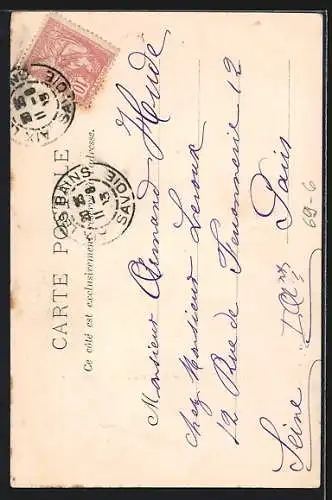 CARTE POSTALE
Ce côté est exclusivement réservé à l'adresse.
Monsieur Armand Haude
chez Monsieur Leroux
12 Rue de Tonnemerie 12
Paris
Seine
69-6
BAINS
SAVOIE
SAVOIE
10